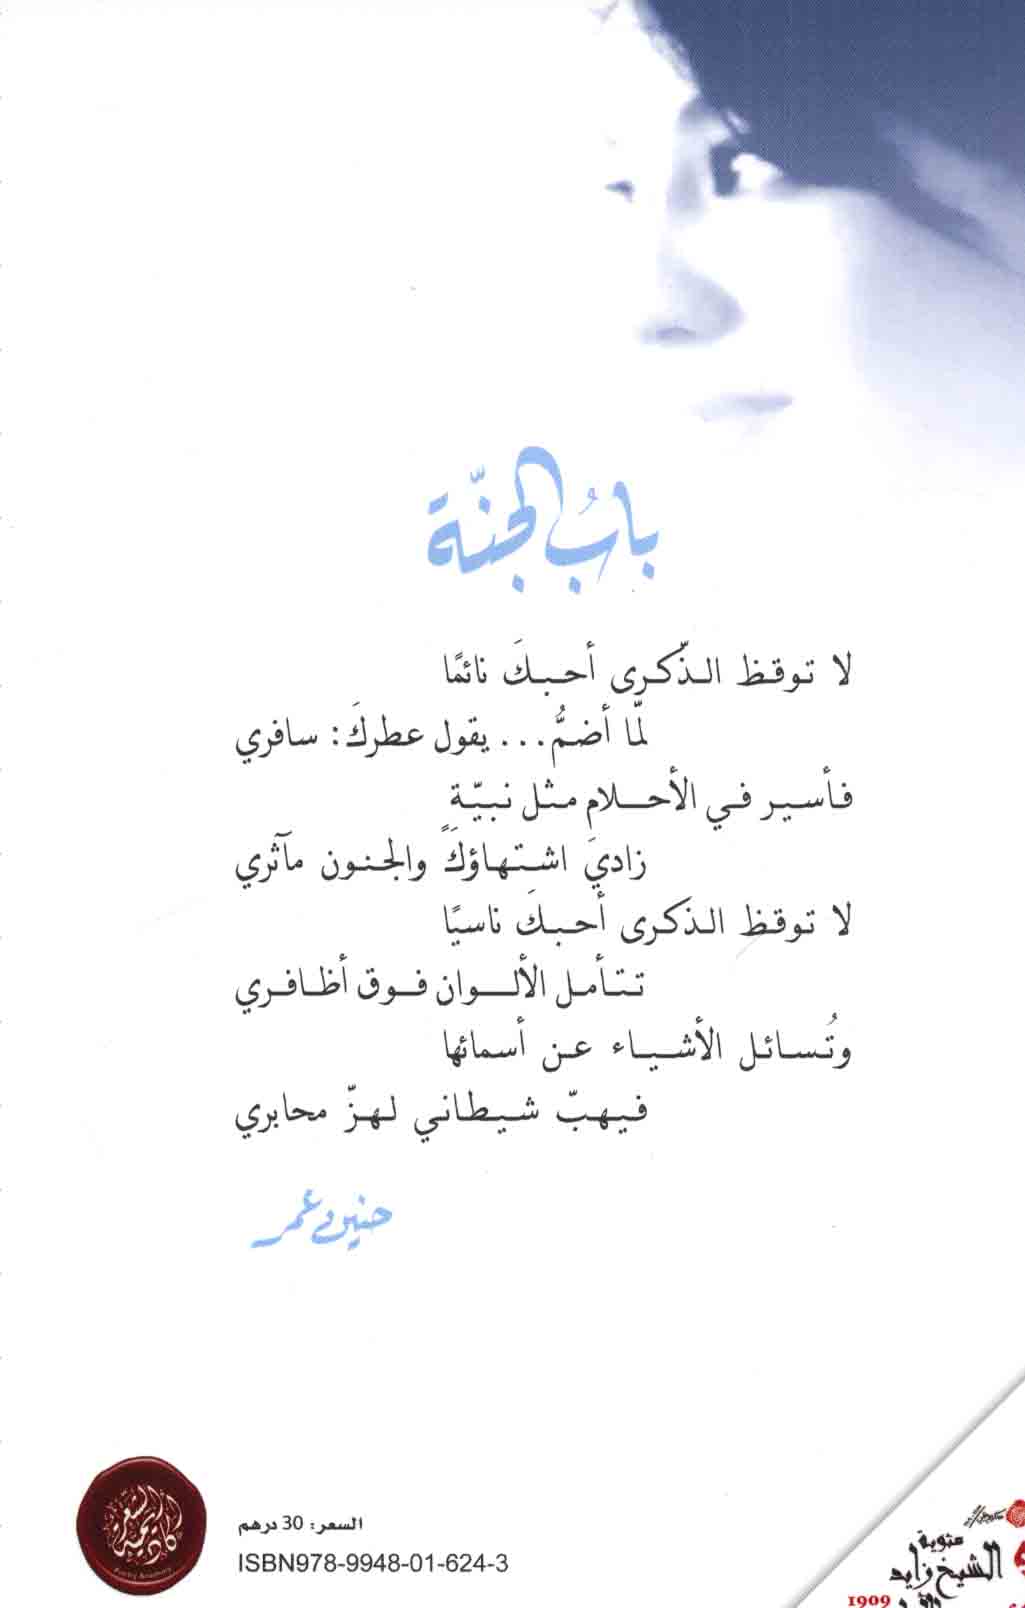 بابُ الجنّة
لا توقظ الذّكرى أحبكَ نائمًا
لمّا أضمُّ... يقول عطركَ: سافري
فأسير في الأحلام مثل نبيّةٍ
زاديَ اشتهاؤكَ والجنون مآثري
لا توقظ الذكرى أحبكَ ناسيًا
تتأمل الألوان فوق أظافري
وتُسائل الأشياء عن أسمائها
فيهبّ شيطاني لهزّ محابري
حنين عمر
أكاديمية الشعر
Poetry Academy
السعر: 30 درهم
ISBN978-9948-01-624-3
مئوية
الشيخ زايد
1909